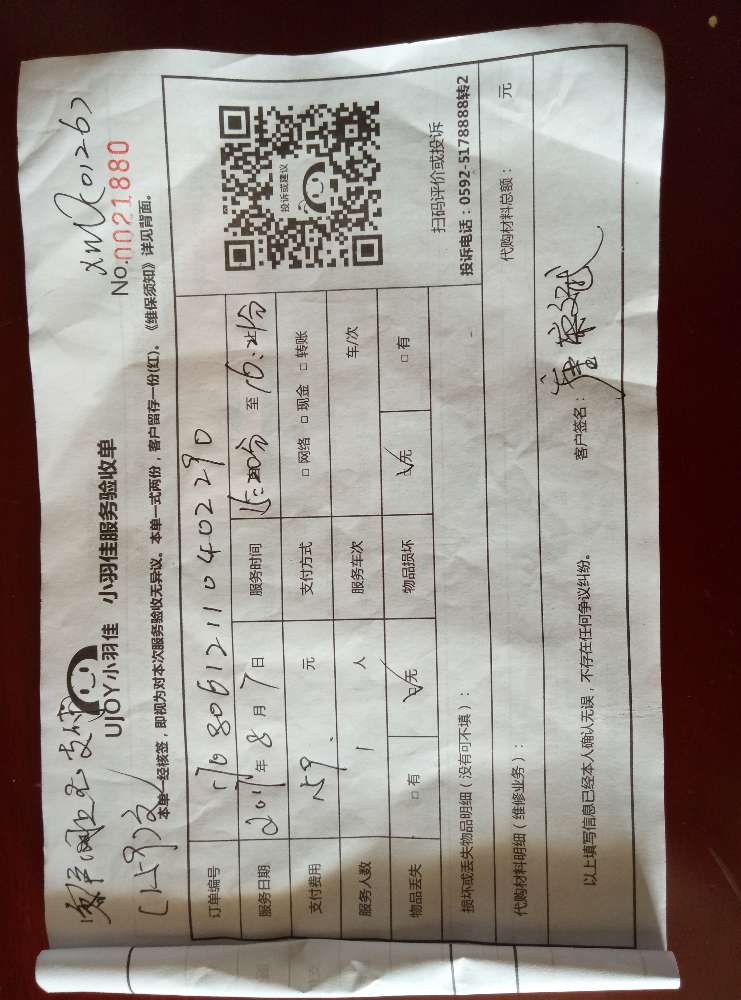 (59)
UJOY小羽佳 小羽佳服务验收单
No.0021880
本单一经核签，即视为对本次服务验收无异议。本单一式两份，客户留存一份(红)。《维保须知》详见背面。
订单编号 170806121104022​90
服务日期 2017年8月7日 服务时间 至
支付费用 59. 元 支付方式 □ 网络 □ 现金 □ 转账
服务人数 1 人 服务车次 车/次
物品丢失 □ 有 ☑无 物品损坏 ☑无 □ 有
投诉或建议
扫码评价或投诉
投诉电话：0592-5178888转2
损坏或丢失物品明细（没有可不填）：
代购材料明细（维修业务）： 代购材料总额： 元
以上填写信息已经本人确认无误，不存在任何争议纠纷。 客户签名：